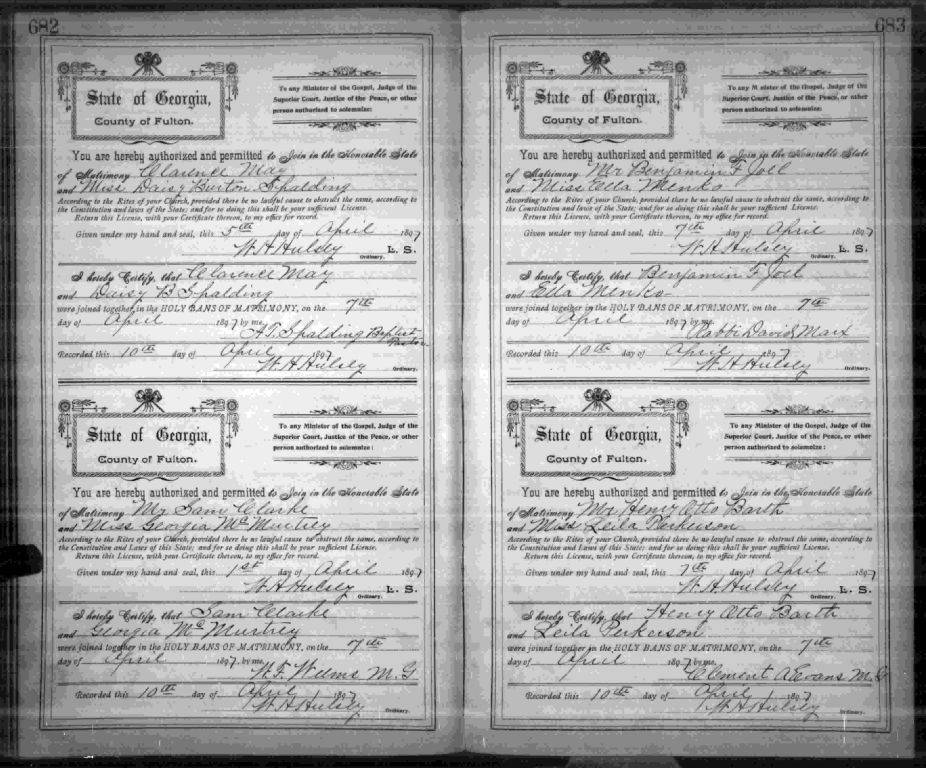 682
State of Georgia,
County of Fulton.
To any Minister of the Gospel, Judge of the
Superior Court, Justice of the Peace, or other
person authorized to solemnize:
You are hereby authorized and permitted to Join in the Honorable State
of Matrimony Clarence May
and Miss Daisy Burton Spalding
According to the Rites of your Church, provided there be no lawful cause to obstruct the same, according to
the Constitution and laws of the State; and for so doing this shall be your sufficient License.
Return this License, with your Certificate thereon, to my office for record.
Given under my hand and seal, this 5th day of April 1897
W. H. Hulsey L. S.
Ordinary.
I hereby Certify, that Clarence May
and Daisy B Spalding
were joined together in the HOLY BANS OF MATRIMONY, on the 7th
day of April 1897 by me,
A. T. Spalding Baptist
Pastor
Recorded this 10th day of April 1897
W. H. Hulsey
Ordinary.
State of Georgia,
County of Fulton.
To any Minister of the Gospel, Judge of the
Superior Court, Justice of the Peace, or other
person authorized to solemnize:
You are hereby authorized and permitted to Join in the Honorable State
of Matrimony Mr Sam Clarke
and Miss Georgia McMurtrey
According to the Rites of your Church, provided there be no lawful cause to obstruct the same, according to
the Constitution and Laws of this State; and for so doing this shall be your sufficient License.
Return this License, with your Certificate thereon, to my office for record.
Given under my hand and seal, this 1st day of April 1897
W. H. Hulsey L. S.
Ordinary.
I hereby Certify, that Sam Clarke
and Georgia McMurtrey
were joined together in the HOLY BANS OF MATRIMONY, on the 7th
day of April 1897, by me,
M. G
Recorded this 10th day of April 1897
W. H. Hulsey
Ordinary.
683
State of Georgia,
County of Fulton.
To any Minister of the Gospel, Judge of the
Superior Court, Justice of the Peace, or other
person authorized to solemnize:
You are hereby authorized and permitted to Join in the Honorable State
of Matrimony Mr Benjamin F. Joel
and Miss Ella Menko
According to the Rites of your Church, provided there be no lawful cause to obstruct the same, according to
the Constitution and laws of the State; and for so doing this shall be your sufficient License.
Return this License, with your Certificate thereon, to my office for record.
Given under my hand and seal, this 7th day of April 1897
W. H. Hulsey L. S.
Ordinary.
I hereby Certify, that Benjamin F. Joel
and Ella Menko
were joined together in the HOLY BANS OF MATRIMONY, on the 7th
day of April 1897 by me,
Rabbi David Marx
Recorded this 10th day of April 1897
W. H. Hulsey
Ordinary.
State of Georgia,
County of Fulton.
To any Minister of the Gospel, Judge of the
Superior Court, Justice of the Peace, or other
person authorized to solemnize:
You are hereby authorized and permitted to Join in the Honorable State
of Matrimony Mr Henry Otto Barth
and Miss Leila Perkerson
According to the Rites of your Church, provided there be no lawful cause to obstruct the same, according to
the Constitution and Laws of this State; and for so doing this shall be your sufficient License.
Return this License, with your Certificate thereon, to my office for record.
Given under my hand and seal, this 7th day of April 1897
W. H. Hulsey L. S.
Ordinary.
I hereby Certify, that Henry Otto Barth
and Leila Perkerson
were joined together in the HOLY BANS OF MATRIMONY, on the 7th
day of April 1897 by me,
Clement A Evans M. G
Recorded this 10th day of April 1897
W. H. Hulsey
Ordinary.